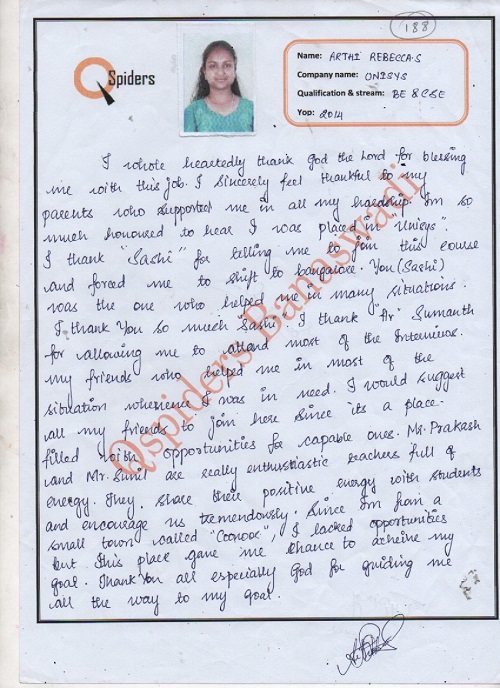 188
QSpiders
Name: ARTHI REBECCA.S
Company name: UNISYS
Qualification & stream: BE & CSE
Yop: 2014
I whole heartedly thank God the Lord for blessing
me with this job. I sincerely feel thankful to my
parents who supported me in all my hardship. Im so
much honoured to hear I was placed in "Unisys".
I thank "Sashi" for telling me to join this course
and forced me to shift to bangalore. You (Sashi)
was the one who helped me in many situations.
I thank You so much Sashi. I thank "Mr" Sumanth
for allowing me to attend most of the Interviews.
my friends who helped me in most of the
situation whenence I was in need. I would suggest
all my friends to join here since its a place
filled with opportunities for capable ones. Mr. Prakash
and Mr. Sunil are really enthustiastic teachers full of
energy. They share their positive energy with students
and encourage us tremendously. Since Im from a
small town called "Coonoor", I lacked opportunities
but this place gave me chance to acheive my
goal. Thank You all especially God for guiding me
all the way to my goal.
Qspiders Banaswadi